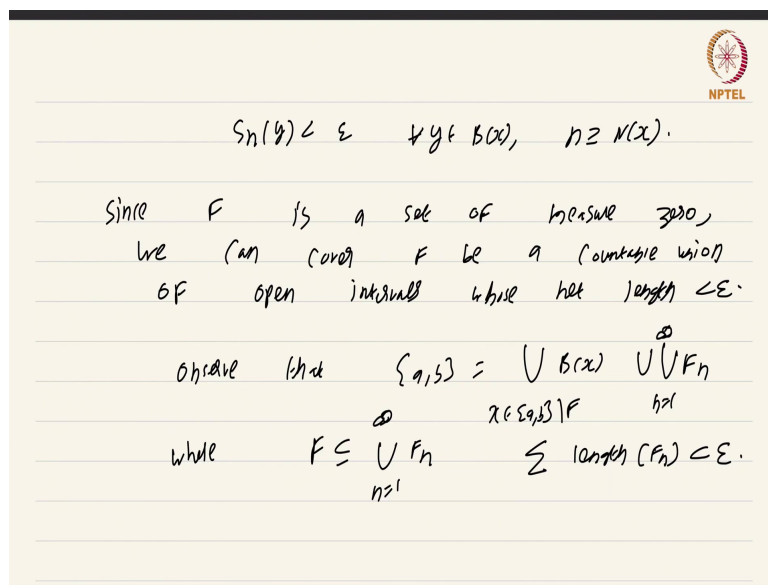 NPTEL
Sn(y) < ε ∀ y ∈ B(x), n ≥ N(x).
Since F is a set of measure zero,
we can cover F be a countable union
of open intervals whose net length < ε.
observe that [a,b] = ⋃ B(x) ∪ ⋃ Fn
x ∈ [a,b] \ F n=1 ∞
where F ⊆ ⋃ Fn Σ length (Fn) < ε.
n=1 ∞